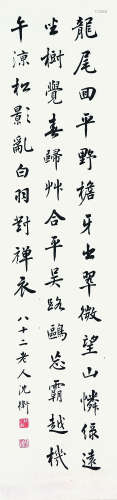 龍尾回平野檐牙出翠微望山憐綠遠
坐樹覺春歸艸合平吳路鷗忘霸越機
午涼松影亂白羽對禪衣
八十二老人沈衛